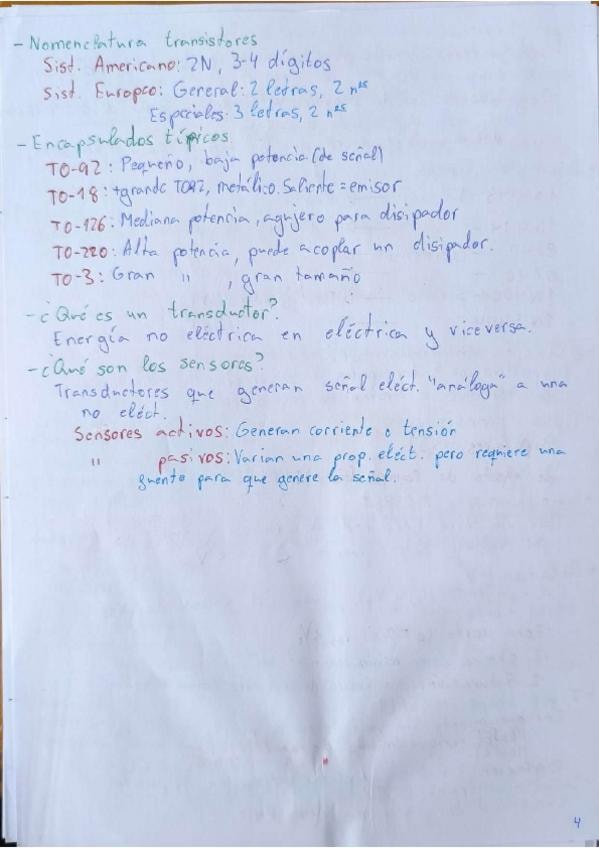 - Nomenclatura transistores
Sist. Americano: 2N, 3-4 dígitos
Sist. Europeo: General: 2 letras, 2 nºs
Especiales: 3 letras, 2 nºs
- Encapsulados típicos
TO-92: Pequeño, baja potencia (de señal)
TO-18: +grande TO92, metálico. Saliente = emisor
TO-126: Mediana potencia, agujero para disipador
TO-220: Alta potencia, puede acoplar un disipador.
TO-3: Gran " , gran tamaño
- ¿Qué es un transductor?
Energía no eléctrica en eléctrica y viceversa.
- ¿Qué son los sensores?
Transductores que generan señal eléct. "análoga" a una
no eléct.
Sensores activos: Generan corriente o tensión
" pasivos: Varían una prop. eléct. pero requiere una
fuente para que genere la señal.
4